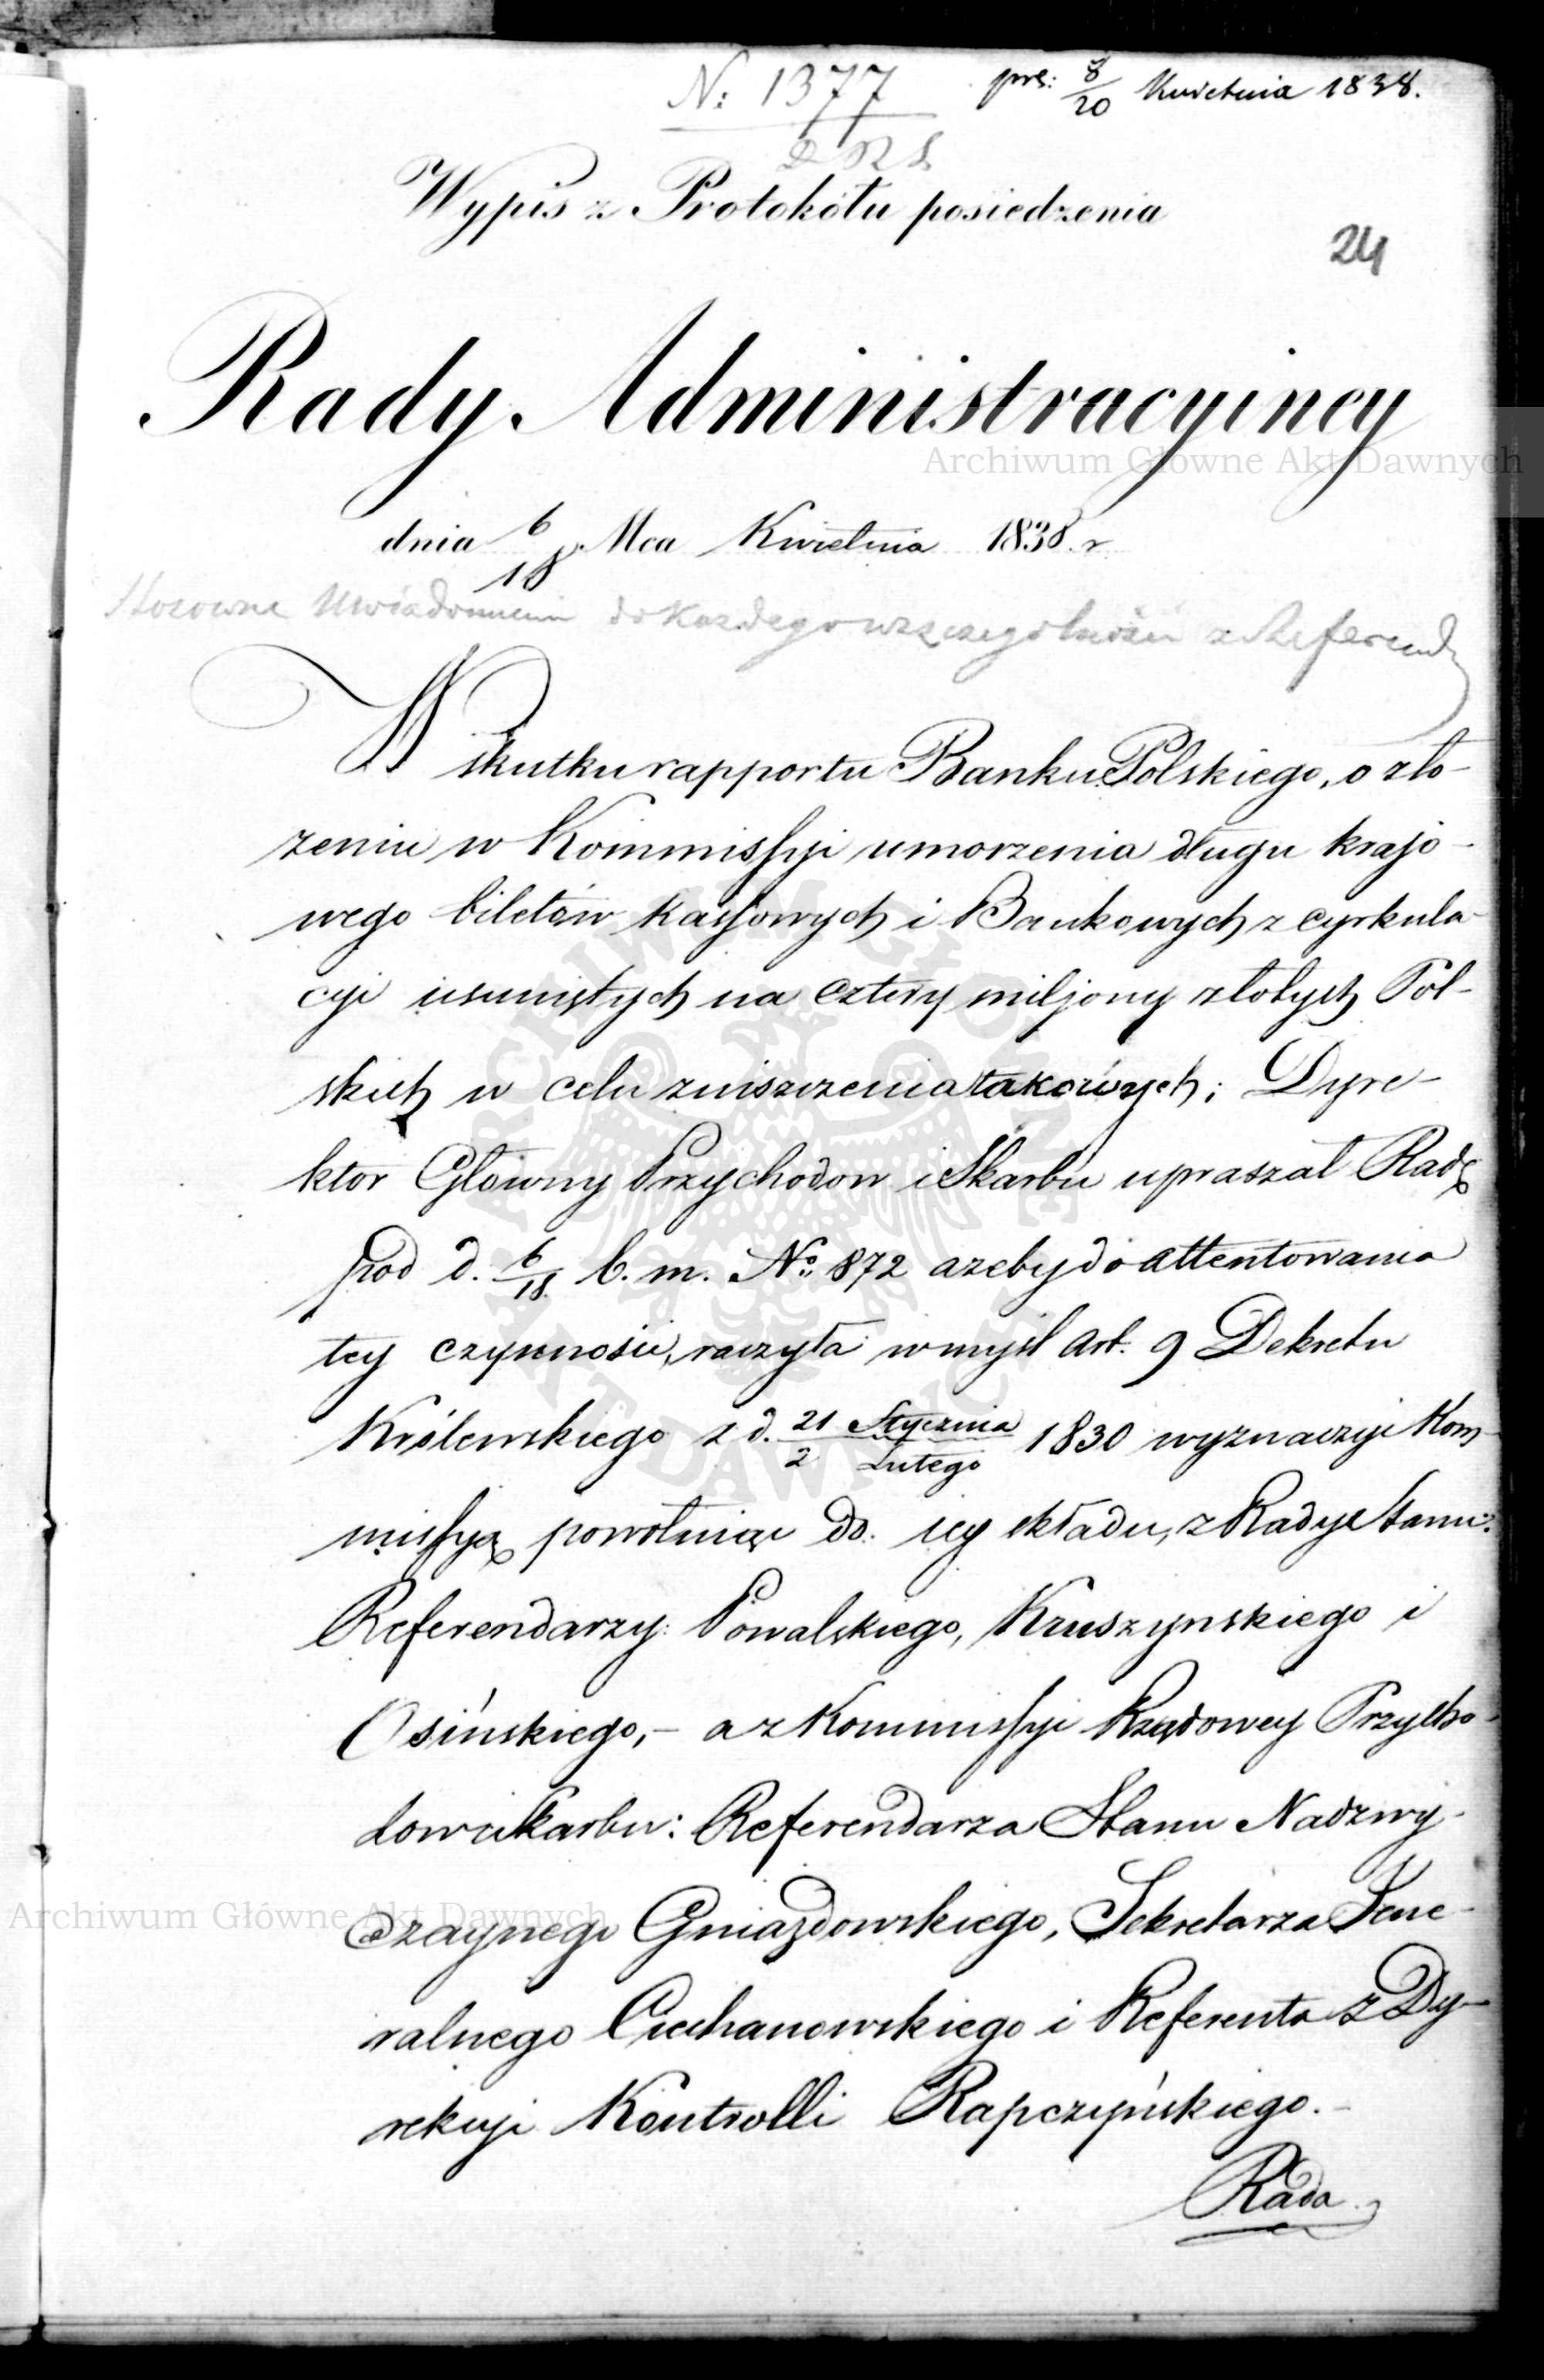 N: 1377
prs: 8/20 Kwietnia 1838.
Wypis z Protokółu posiedzenia
24
Rady Administracyiney
dnia 6/18 Mca Kwietnia 1838 r
Stosowne Uwiadomienia do Każdego w szczególności z Referend
W skutku rapportu Banku Polskiego, o zło-
żeniu w Kommissyi umorzenia długu krajo-
wego biletów kassowych i Bankowych z cyrkula-
cyi usuniętych na cztery miljony złotych Pol-
skich w celu zniszczenia takowych; Dyre-
ktor Główny Przychodow i Skarbu upraszał Radę
pod d. 6/18 b. m. No. 872 azeby do attentowania
tey czynnosci, raczyła w myśl Art. 9 Dekretu
Królewskiego z d. 21 Stycznia/2 Lutego 1830 wyznaczyć Kom-
missyą powołuiąc do iey składu, z Rady Stanu:
Referendarzy: Powalskiego, Kruszynskiego i
Osińskiego, – a z Kommissyi Rządowey Przycho-
dow i Skarbu: Referendarza Stanu Nadzwy-
czaynego Gniazdowskiego, Sekretarza Jene-
ralnego Ciechanowskiego i Referenta z Dy-
rekcyi Kontrolli Rapczyńskiego.–
Rada
Archiwum Główne Akt Dawnych
Archiwum Główne Akt Dawnych
ARCHIWUM GŁÓWNE AKT DAWNYCH